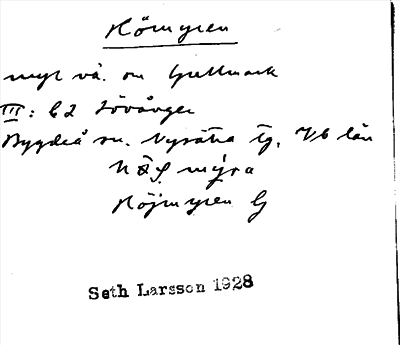 Hörmyren
myr vä. om Gullmark
III: C2 Lövånger
Bygdeå sn. Nysätra tg. Vb län
myra
Höjmyren G
Seth Larsson 1928